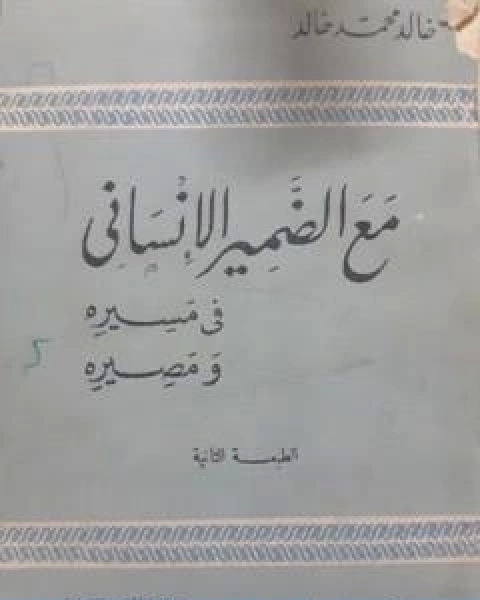 خالد محمد خالد
مَعَ الضَّمِير الإنسَانى
فى مَسِيره
وَ مَصِيرِه
الطبعة الثانية